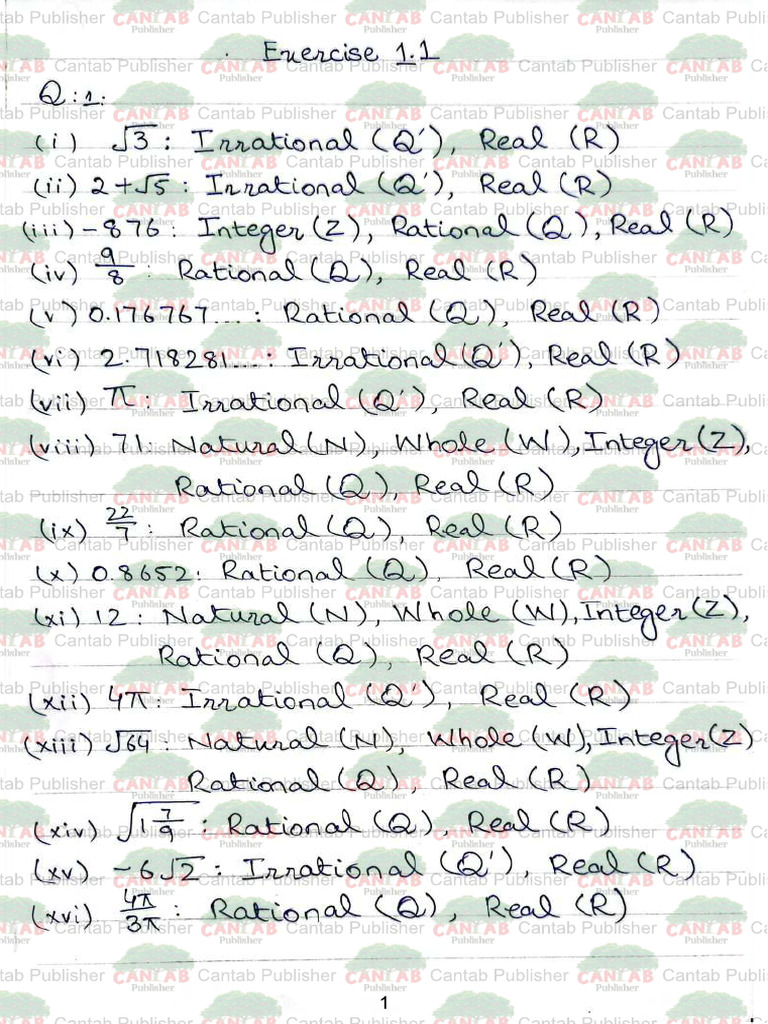 Exercise 1.1
Q:1:
(i) √3 : Irrational (Q'), Real (R)
(ii) 2+√5 : Irrational (Q'), Real (R)
(iii) -876: Integer (Z), Rational (Q), Real (R)
(iv) 9/8 : Rational (Q), Real (R)
(v) 0.176767... : Rational (Q), Real (R)
(vi) 2.718281...: Irrational (Q'), Real (R)
(vii) π : Irrational (Q'), Real (R)
(viii) 71: Natural (N), Whole (W), Integer (Z),
Rational (Q), Real (R)
(ix) 22/7 : Rational (Q), Real (R)
(x) 0.8652: Rational (Q), Real (R)
(xi) 12 : Natural (N), Whole (W), Integer (Z),
Rational (Q), Real (R)
(xii) 4π: Irrational (Q'), Real (R)
(xiii) √64 : Natural (N), Whole (W), Integer (Z)
Rational (Q), Real (R)
(xiv) √1 7/9 : Rational (Q), Real (R)
(xv) -6√2 : Irrational (Q'), Real (R)
(xvi) 4π/3π : Rational (Q), Real (R)
1
Cantab Publisher
CANTAB
Publisher